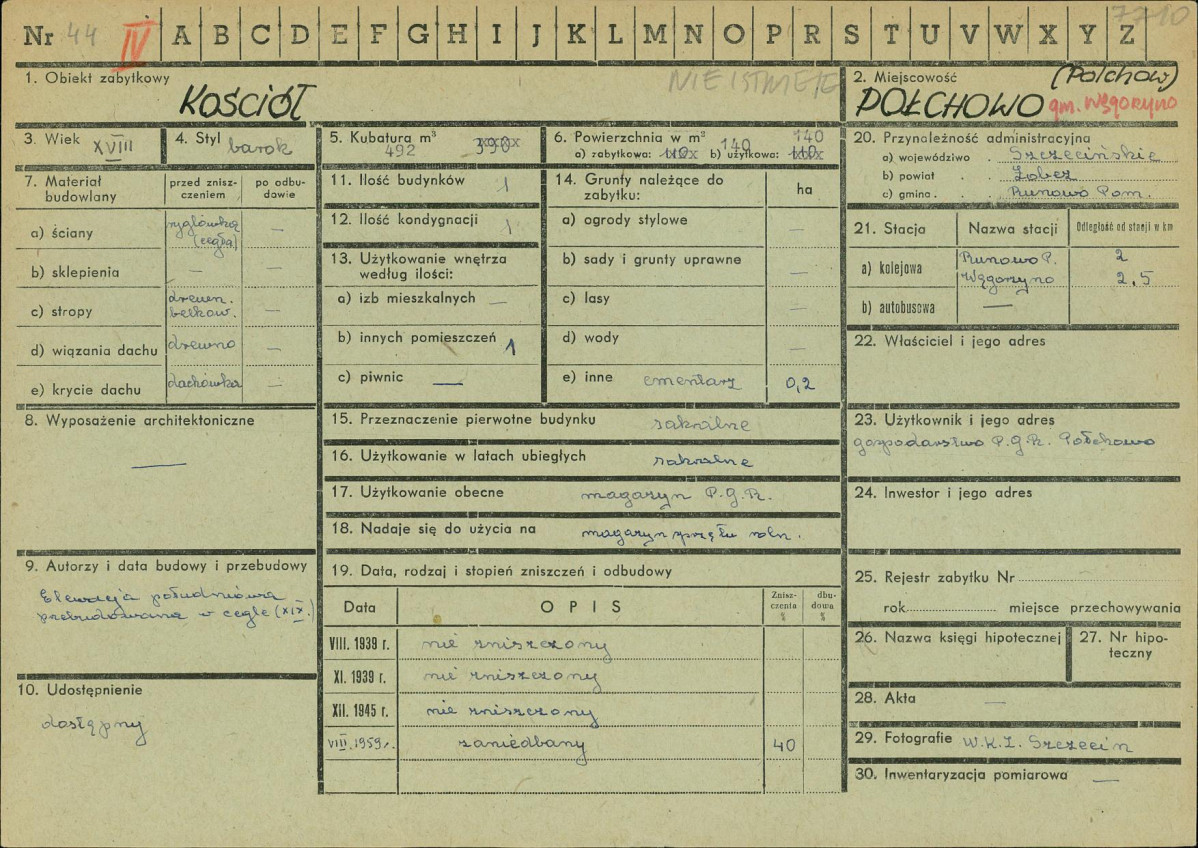 Nr 44 IV A B C D E F G H I J K L M N O P R S T U V W X Y Z 7710
1. Obiekt zabytkowy
KOŚCIÓŁ
NIE ISTNIEJE
2. Miejscowość (Polchow)
POŁCHOWO gm. Węgorzyno
3. Wiek XVIII
4. Styl barok
5. Kubatura m³
492 390
6. Powierzchnia w m² 140
a) zabytkowa: 140 b) użytkowa:
7. Materiał budowlany
przed zniszczeniem
po odbudowie
a) ściany ryglówka (cegła) —
b) sklepienia — —
c) stropy drewn. belkow. —
d) wiązania dachu drewno —
e) krycie dachu dachówka —
8. Wyposażenie architektoniczne
—
9. Autorzy i data budowy i przebudowy
Elewacja południowa
przebudowana w cegle (XIX.)
10. Udostępnienie
dostępny
11. Ilość budynków 1
12. Ilość kondygnacji 1
13. Użytkowanie wnętrza
według ilości:
a) izb mieszkalnych —
b) innych pomieszczeń 1
c) piwnic —
14. Grunty należące do
zabytku:
ha
a) ogrody stylowe —
b) sady i grunty uprawne —
c) lasy —
d) wody —
e) inne cmentarz 0,2
15. Przeznaczenie pierwotne budynku sakralne
16. Użytkowanie w latach ubiegłych sakralne
17. Użytkowanie obecne magazyn P.G.R.
18. Nadaje się do użycia na magazyn sprzętu roln.
19. Data, rodzaj i stopień zniszczeń i odbudowy
Data OPIS Zniszczenia % dbudowa %
VIII. 1939 r. nie zniszczony
XI. 1939 r. nie zniszczony
XII. 1945 r. nie zniszczony
VIII. 1959 r. zaniedbany 40
20. Przynależność administracyjna
a) województwo . Szczecińskie
b) powiat . . Łobez
c) gmina . Runowo Pom.
21. Stacja Nazwa stacji Odległość od stacji w km
a) kolejowa Runowo P. 2
Węgorzyno 2,5
b) autobusowa —
22. Właściciel i jego adres
23. Użytkownik i jego adres
gospodarstwo P.G.R. Połchowo
24. Inwestor i jego adres
25. Rejestr zabytku Nr
rok miejsce przechowywania
26. Nazwa księgi hipotecznej
27. Nr hipoteczny
28. Akta —
29. Fotografie W.K.Z. Szczecin
30. Inwentaryzacja pomiarowa —